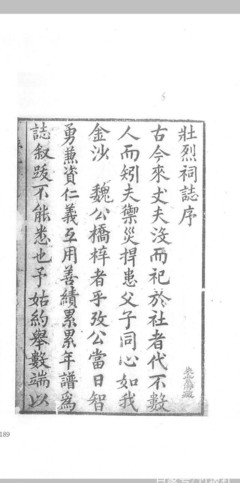 壯烈祠誌序
古今來丈夫沒而祀於社者代不數
人而矧夫禦災捍患父子同心如我
金沙　魏公橋梓者乎攷公當日智
勇兼資仁義互用善績累累年譜爲
誌敘跋不能悉也予姑約舉數端以
189